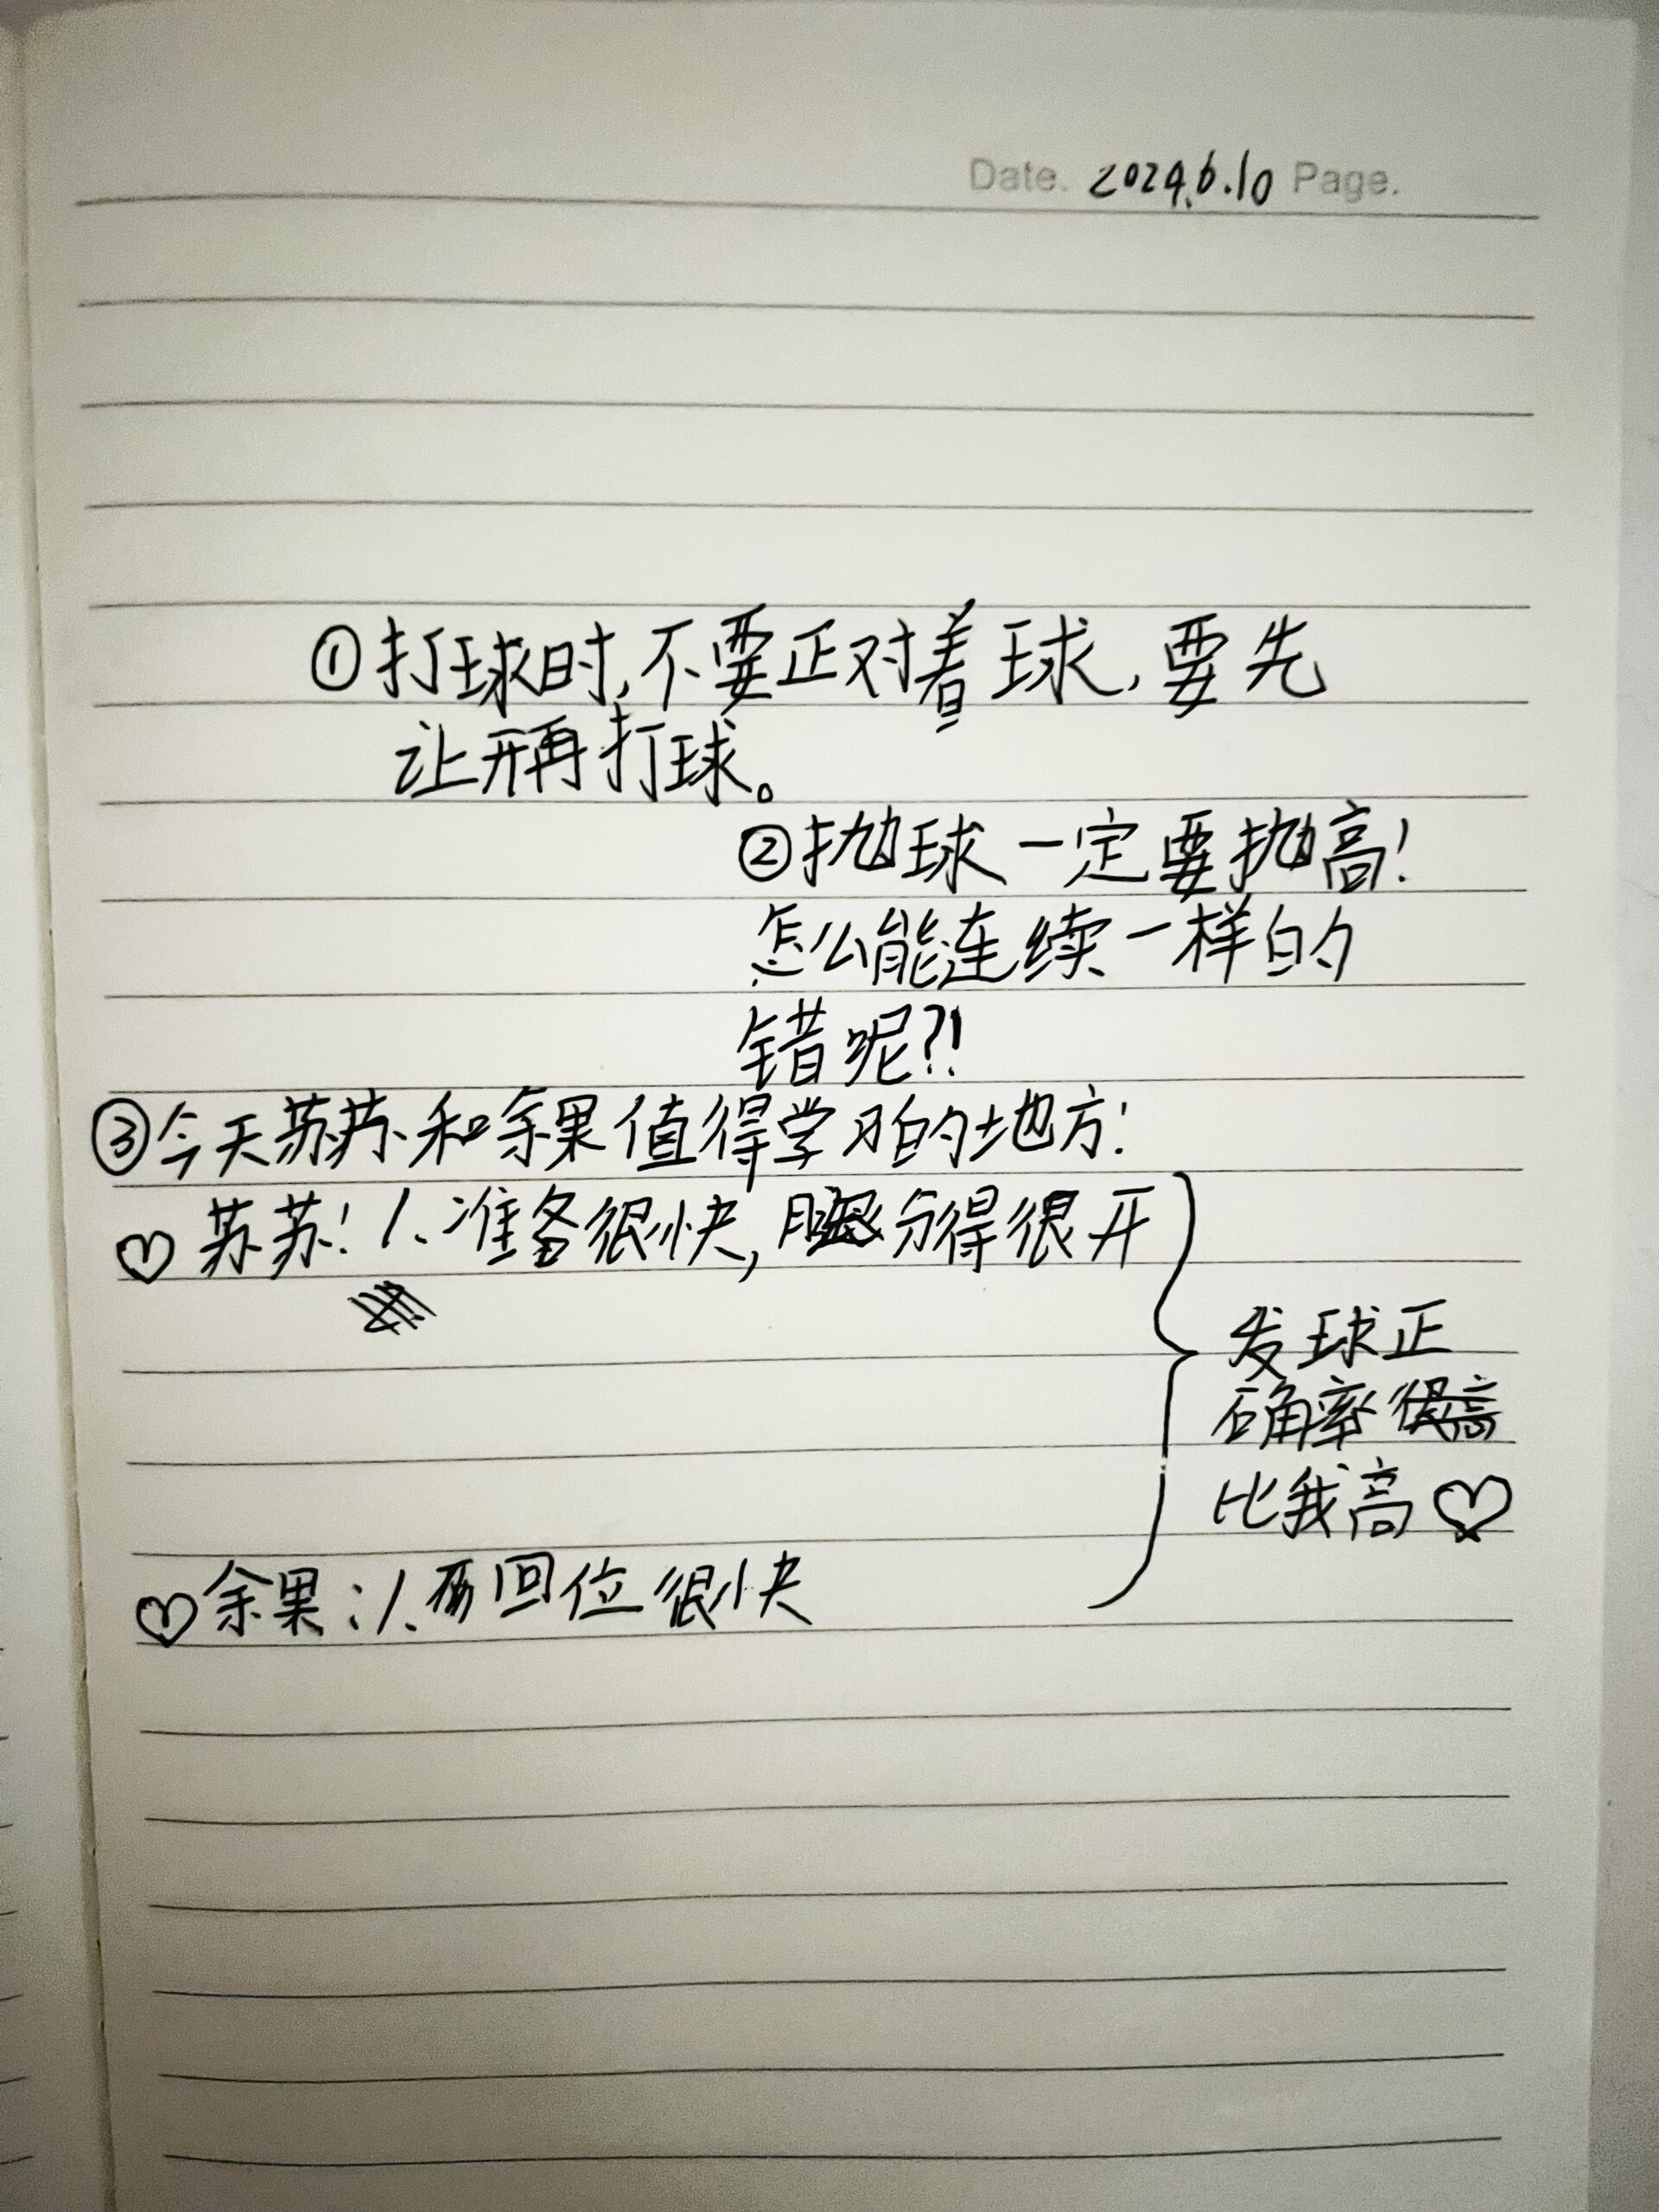 Date. 2024.6.10 Page.
①打球时,不要正对着球,要先
让开再打球。
②抛球一定要抛高!
怎么能连续一样的
错呢?!
③今天苏苏和余果值得学习的地方:
♡苏苏! 1、准备很快,腿分得很开
发球正
确率很高
比我高♡
♡余果:1、回位很快